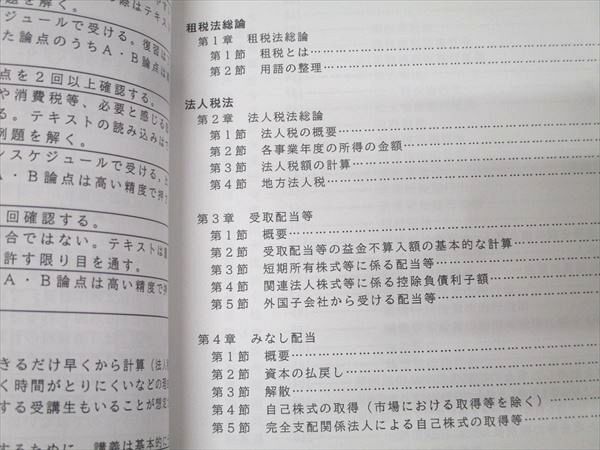 題を解く。
ジュールで受ける。復習は
た論点のうちA・B論点は
点を2回以上確認する。
や消費税等、必要と感じる
る。テキストの読み込みは
例題を解く。
ンスケジュールで受ける。
A・B論点は高い精度で
回確認する。
合ではない。テキストは
許す限り目を通す。
A・B論点は高い精度で
きるだけ早くから計算（法人
く時間がとりにくいなどの理
する受講生もいることが想定
するために、講義は基本的に
租税法総論
第1章　租税法総論
第1節　租税とは
第2節　用語の整理
法人税法
第2章　法人税法総論
第1節　法人税の概要
第2節　各事業年度の所得の金額
第3節　法人税額の計算
第4節　地方法人税
第3章　受取配当等
第1節　概要
第2節　受取配当等の益金不算入額の基本的な計算
第3節　短期所有株式等に係る配当等
第4節　関連法人株式等に係る控除負債利子額
第5節　外国子会社から受ける配当等
第4章　みなし配当
第1節　概要
第2節　資本の払戻し
第3節　解散
第4節　自己株式の取得（市場における取得等を除く）
第5節　完全支配関係法人による自己株式の取得等